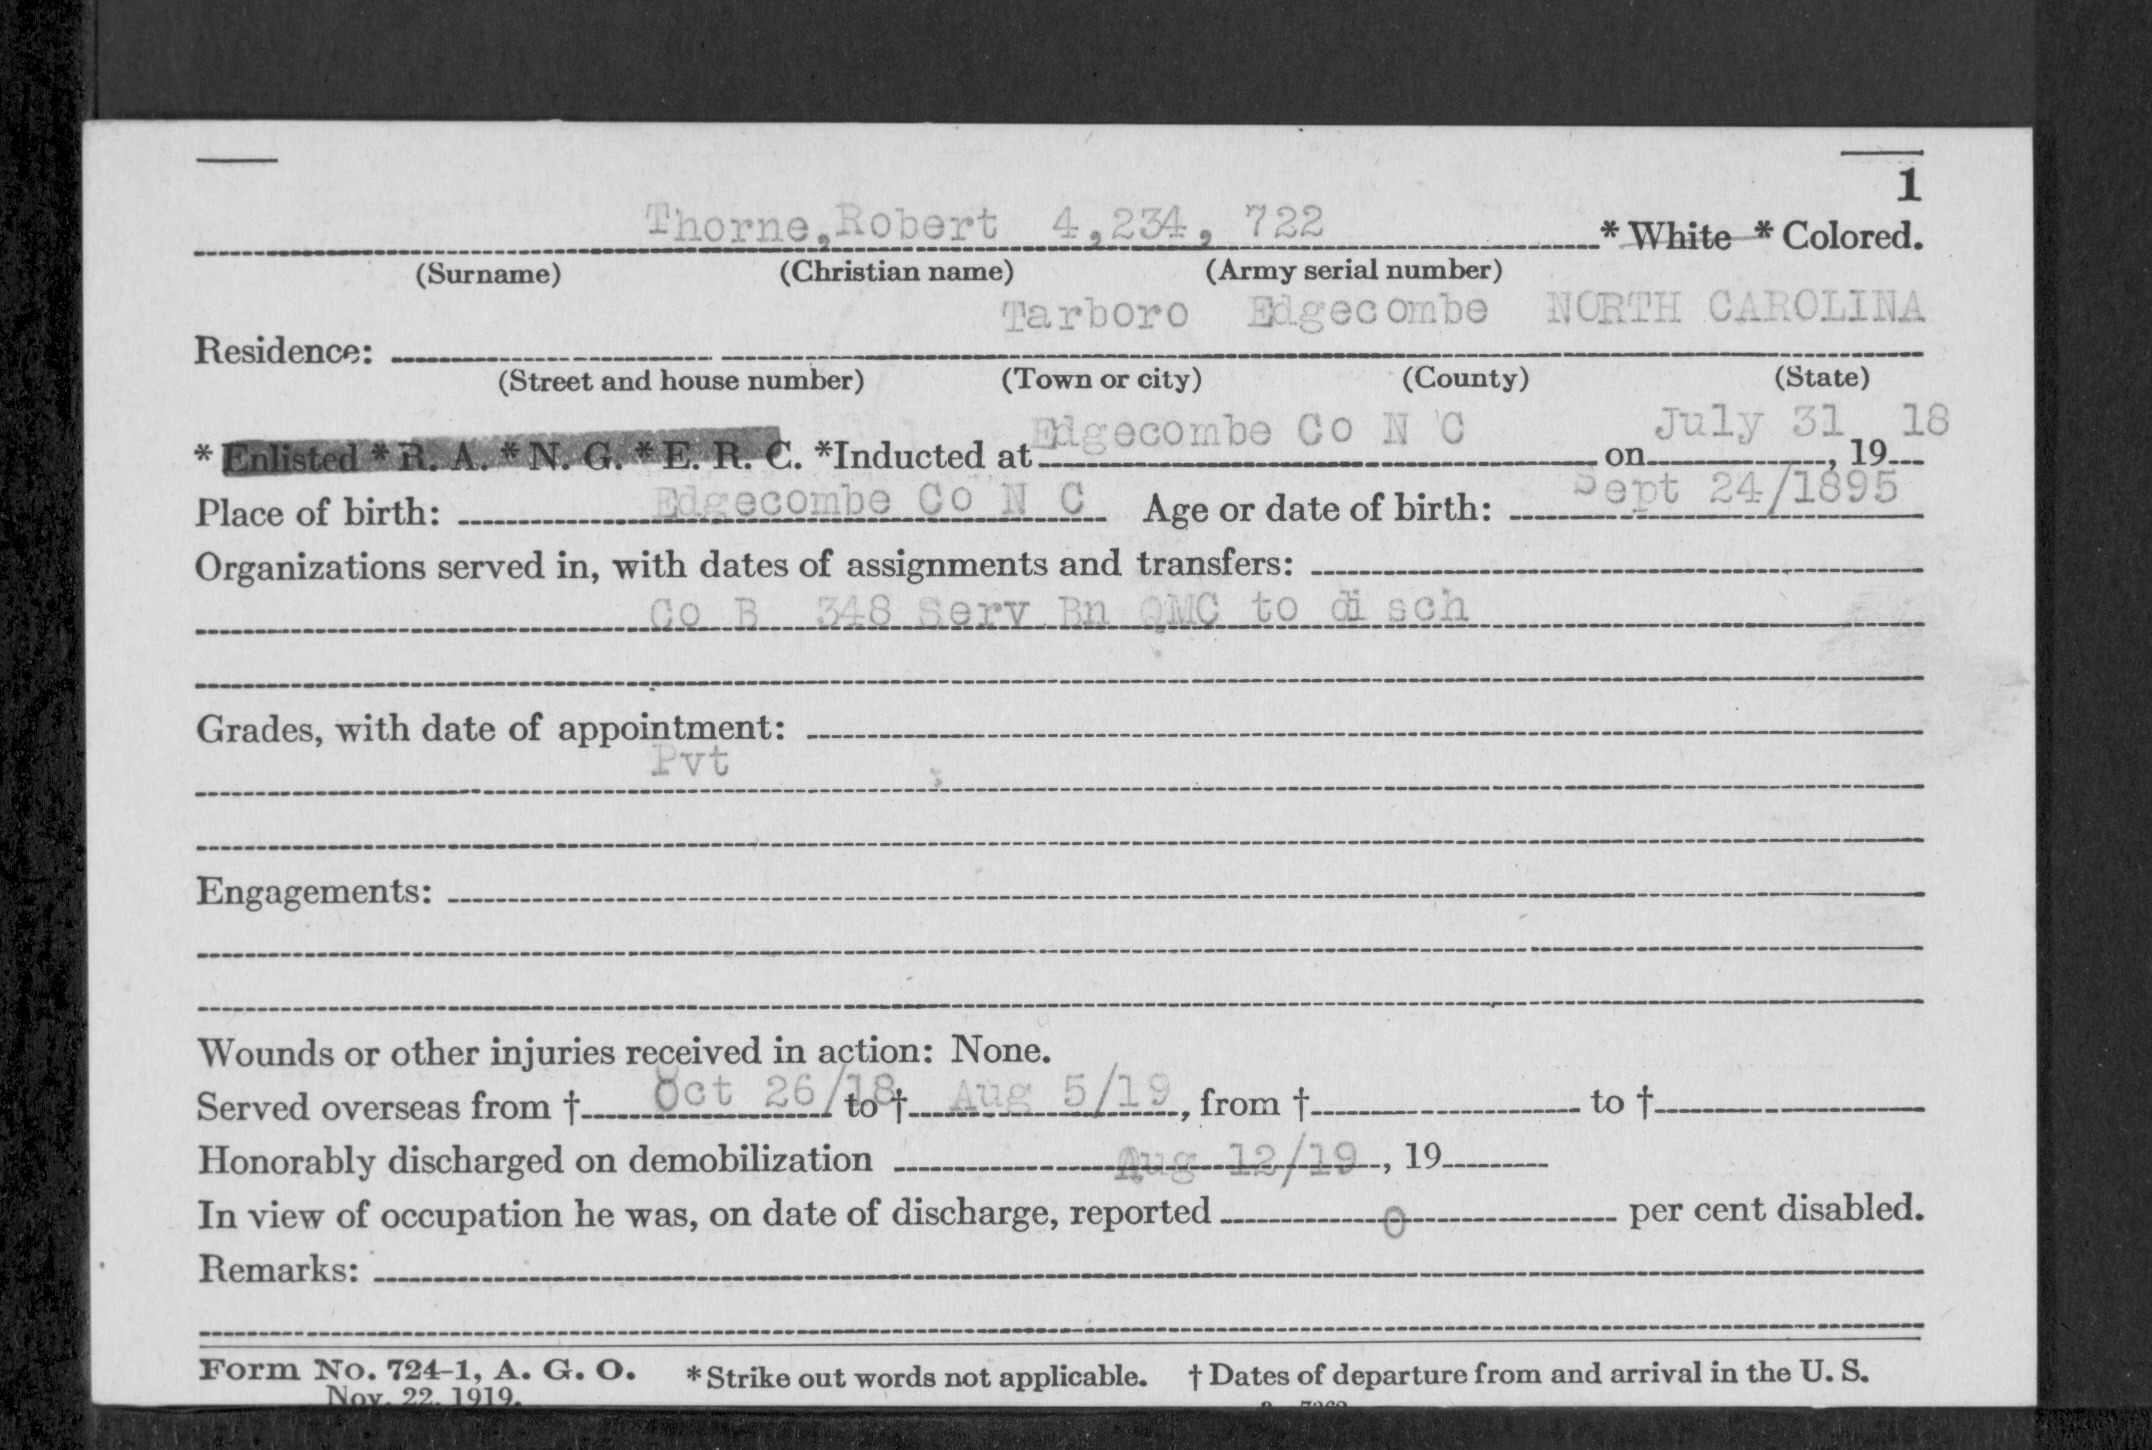 1
Thorne, Robert 4,234, 722 * White * Colored.
(Surname) (Christian name) (Army serial number)
Tarboro Edgecombe NORTH CAROLINA
Residence:
(Street and house number) (Town or city) (County) (State)
* Enlisted * R. A. * N. G. * E. R. C. *Inducted at Edgecombe Co N C on July 31, 1918
Place of birth: Edgecombe Co N C Age or date of birth: Sept 24/1895
Organizations served in, with dates of assignments and transfers:
Co B 348 Serv Bn QMC to disch
Grades, with date of appointment:
Pvt
Engagements:
Wounds or other injuries received in action: None.
Served overseas from † Oct 26/18 to † Aug 5/19, from † to †
Honorably discharged on demobilization Aug 12/19, 19
In view of occupation he was, on date of discharge, reported 0 per cent disabled.
Remarks:
Form No. 724-1, A. G. O. * Strike out words not applicable. † Dates of departure from and arrival in the U. S.
Nov. 22, 1919.